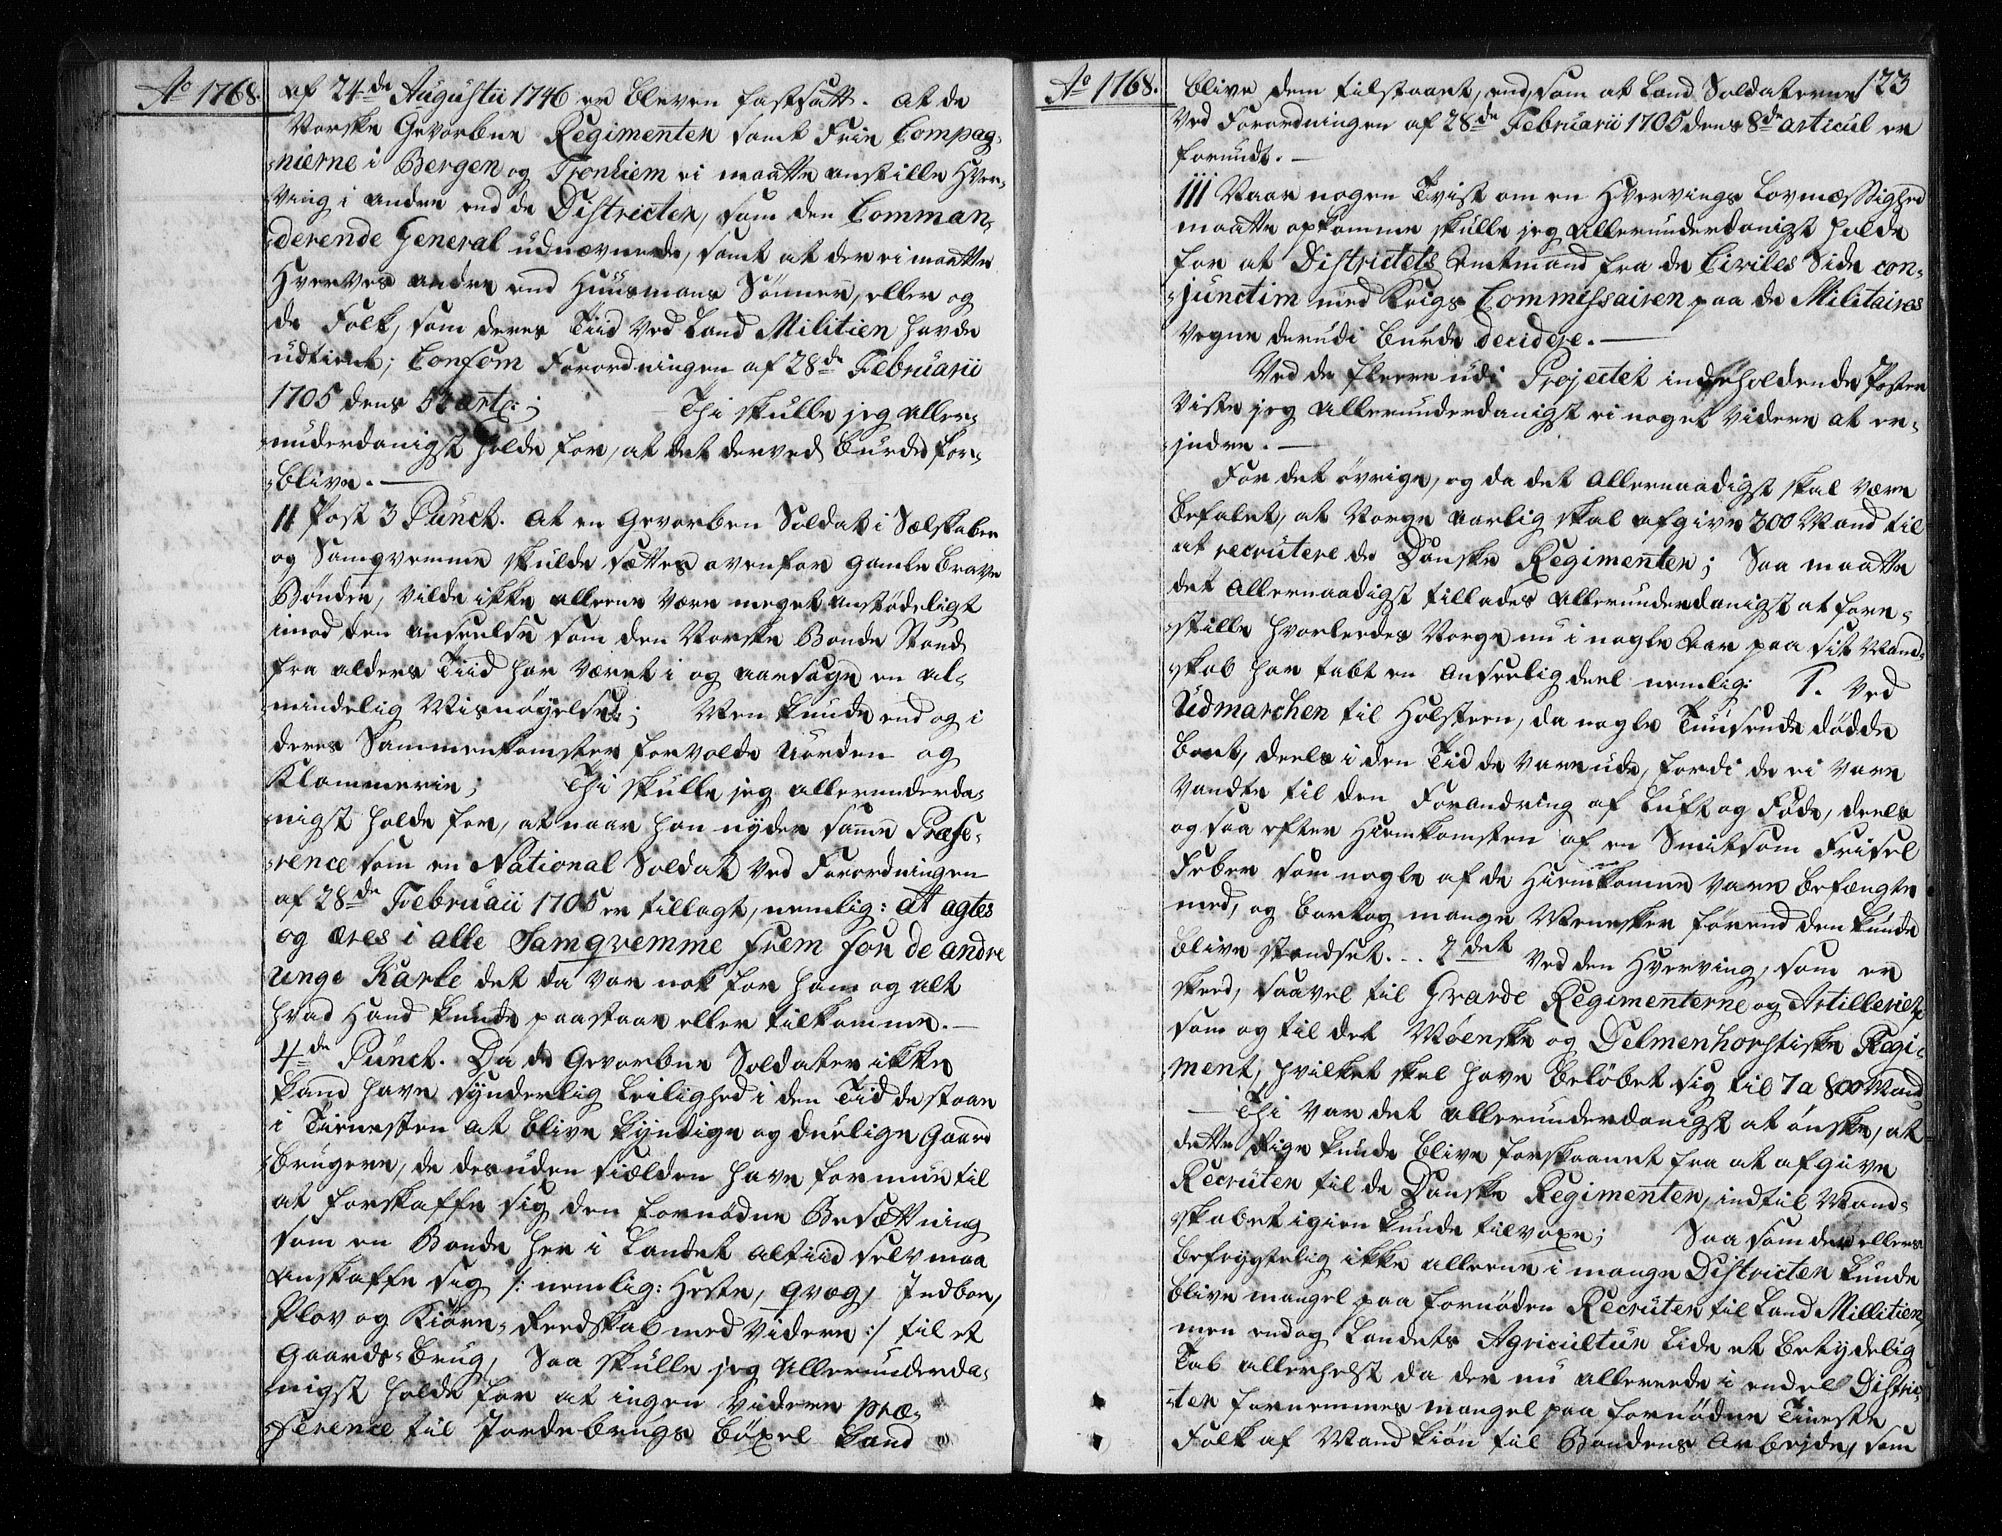 Ao 1768.
af 24de Augustii 1746 er bleven fastsatt. at de
Norske Gevorbne Regimenter samt Frie Compag-
-nierne i Bergen og Tronhiem ei maatte anstille Hver-
-ving i andre end de Districter, som den Comman-
-derende General udnævnede, samt at der ei maatte
Hverves andre end Huusmans Sønner, eller og
de Folk, som deres Tiid ved Land Militien havde
udtient; Conform Forordningen af 28de Februarii
1705 dens 53 art:; Thi skulle jeg aller-
-underdanigst holde for, at det derved burde for-
-blive. —
11 Post 3 Punct. At en Gevorben Soldat i Sælskaber
og Samqvemme skulde sættes ovenfor gamle brave
Bønder, vilde ikke alleene være meget anstødeligt
imod den anseelse som den Norske Bonde Stand
fra alders Tiid har været i og aarsage en al-
-mindelig Misnøyelse; Men kunde end og i
deres Sammenkomster forvolde Uorden og
Klammerie; Thi skulle jeg allerunderda-
-nigst holde for, at naar han nyder samme Præfe-
-rence som en National Soldat ved Forordningen
af 28de Februaii 1705 er tillagt, nemlig: att agtes
og æres i alle Samqvemme frem for de andre
unge Karle det da var nok for ham og alt
hvad Hand kunde paastaae eller tilkomme. —
4de Punct. Da de Gevorbne Soldater ikke
kand have synderlig Leilighed i den Tid de staar
i Tienesten at blive kyndige og duelige Gaard
-brugere, de desuden sielden have formue til
at forskaffe sig den fornødne Besættning
som en Bonde her i Landet altiid selv maa
anskaffe sig /: nemlig: Heste, qvæg, Indboe,
Plov og Kiøre-Reedskab med videre :/ til et
Gaards-brug, Saa skulle jeg allerunderda-
-nigst holde for at ingen videre præ-
-ference til Jordebrugs bøxel kand
Ao 1768.
123
blive dem tilstaaet, end, som at Land Soldaterne
ved Forordningen af 28de Februarii 1705 dens 8de articul er
forundt. —
111 Naar nogen Tvist om en Hvervings Lovmæssighed
maatte opkomme skulle jeg allerunderdanigst holde
for at Districtets Amtmand fra de Civiles Side con-
-junctim med Krigs Commissairen paa de Militaires
vegne derudi burde decidere. —
Ved de fleere udi Projectet indeholdende Poster
viste jeg allerunderdanigst ei noget videre at er-
-indre. —
For det øvrige, og da det Allernaadigst skal være
befalet, at Norge aarlig skal afgive 300 Mand til
at recrutere de Danske Regimenter; Saa maatte
det Allernaadigst tillades allerunderdanigst at fore-
-stille hvorleedes Norge nu i nogle Aar paa sit Mand-
-skab har tabt en anseelig deel nemlig: 1. ved
Udmarchen til Holsteen, da nogle Tuusende døde
bort, deels i den Tid de vare ude, fordi de ei vare
vandte til den Forandring af Luft og Føde, deels
og saa efter Hiemkomsten af en Smitsom Frisel
Feber som nogle af de Hiemkomne vare befængte
med, og bortog mange Menesker førend den kunde
blive standset. .. 2det ved den Hverving, som er
skeed, saavel til Grarde Regimenterne og Artilleriet
som og til det Møenske og Delmenhorstiske Regi-
ment, hvilket skal have beløbet sig til 7 a 800 Mand
— Thi var det allerunderdanigst at ønske, at
dette Rige kunde blive forskaanet fra at afgive
Recruter til de Danske Regimenter, indtil Mand-
-skabet igien kunde tilvoxe; Saa som der ellers
befrygtelig ikke alleene i mange Districter kunde
blive mangel paa fornøden Recruter til Land Millitien
men endog Landets Agricultur lide et betydelig
Tab allerhelst da der nu allereede i endel Distric-
-ter fornemmes mangel paa fornødne Tieneste
Folk af Mandkiøn til Bondens Arbejde, som